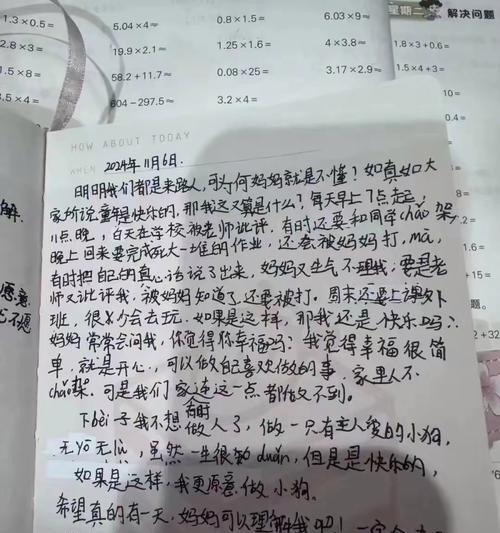 1.3×0.5=
5.04×4≈
0.8×1.5=
6.03×9≈
星期二
解决问题
2.8×3=
19.9×2.1≈
1.25×1.6=
4×3.8≈
1.8×3+0.6=
1.5×8=
58.2+11.7≈
0.08×25=
3.17×2.9≈
1.5×4+3=
3.5×4=
604-297.5≈
3.2×4=
HOW ABOUT TODAY
WHEN 2024年11月6日.
明明我们都是来路人,可为何妈妈就是不懂?如真如大
家所说童年是快乐的,那我这又算是什么?每天早上7点起,
11点晚,白天在学校被老师批评.有时还要和同学chǎo架,
晚上回来要完成死大一堆的作业,还会被妈妈打,mà,
有时把自己的真心话说了出来,妈妈又生气不理我;要是老
师又批评我,被妈妈知道了还要被打.周末还要上课外
班,很少会去玩.如果是这样,那我还是快乐吗?
妈妈常常会问我,你觉得你幸福吗?我觉得幸福很简
单,就是开心,可以做自己喜欢做的事,家里人不
chǎo架.可是我们家连这一点都做不到.
下bèi子我不想做人了,做一只有主人爱的小狗,
无yōu无lǜ,虽然一生很duǎn,但是是快乐的,
如果是这样,我更愿意做小狗.
希望真的有一天,妈妈可以理解我吧!